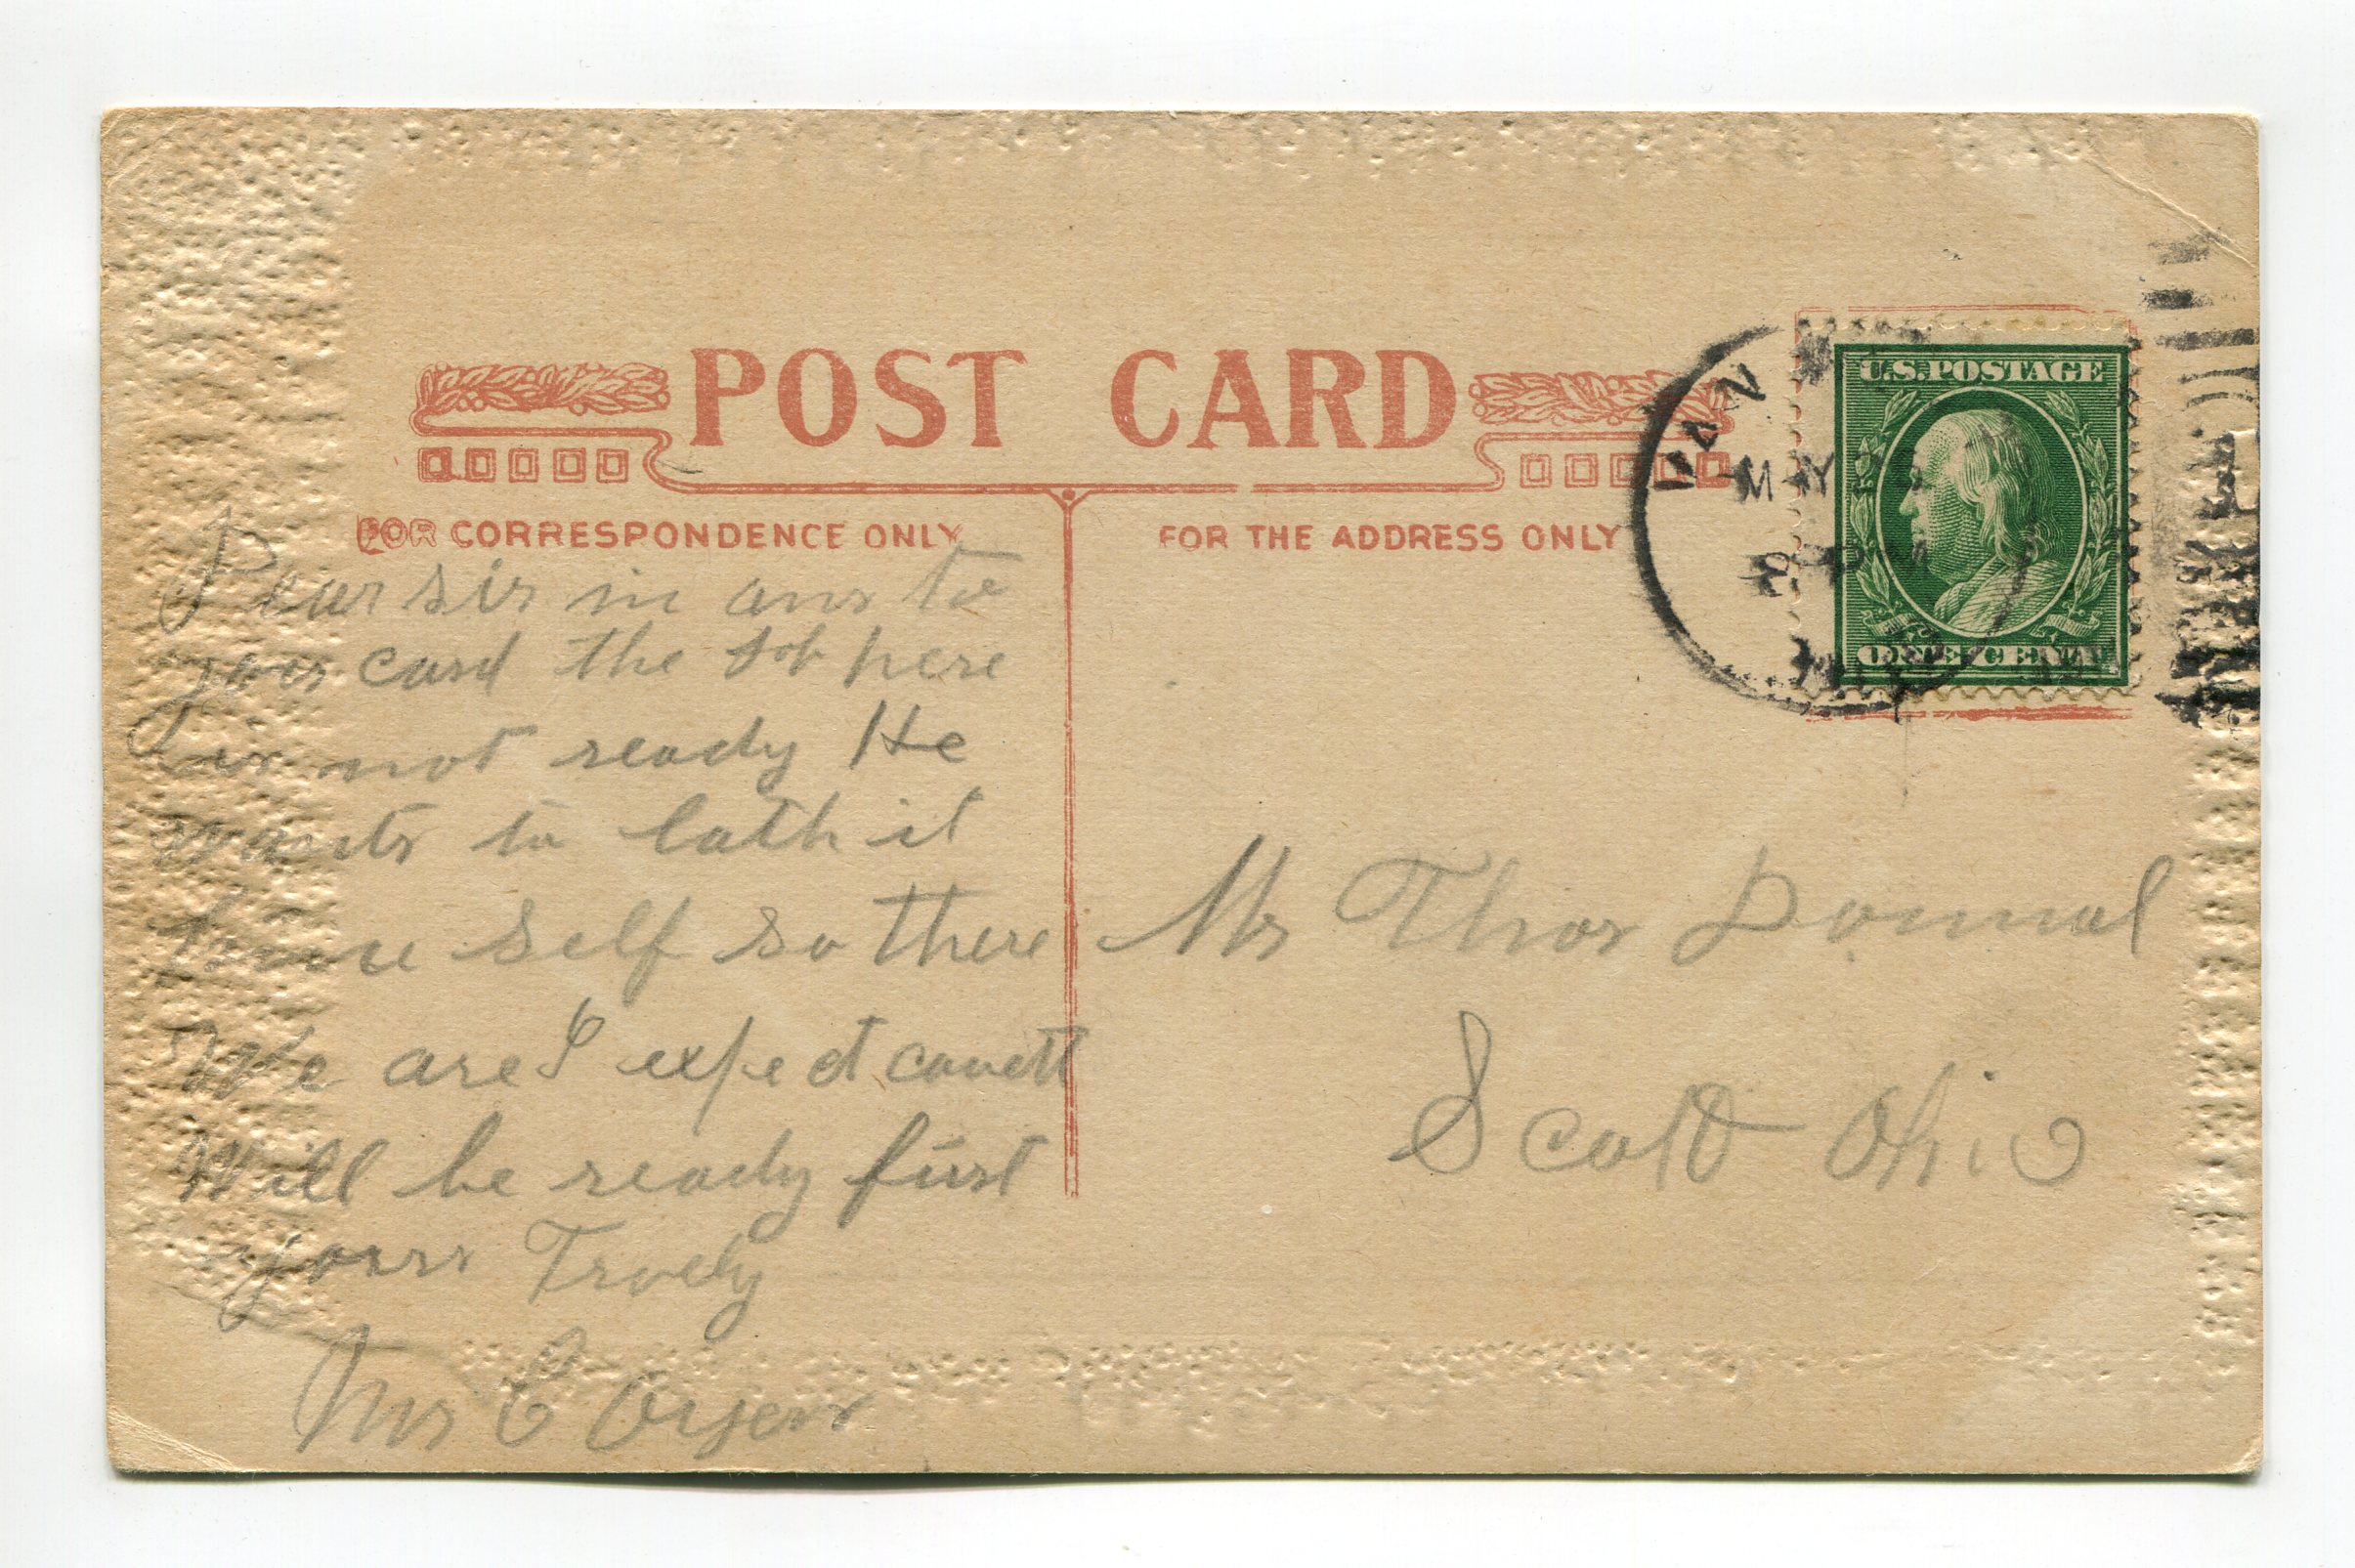 POST CARD
FOR CORRESPONDENCE ONLY
FOR THE ADDRESS ONLY
U.S. POSTAGE
ONE CENT
VAN
MAY
Dear sir in ans to
your card the job here
is not ready He
wants to lath it
self so there
We are I expect
Will be ready first
yours Truely
Mrs C
Mr Thos
Scott Ohio